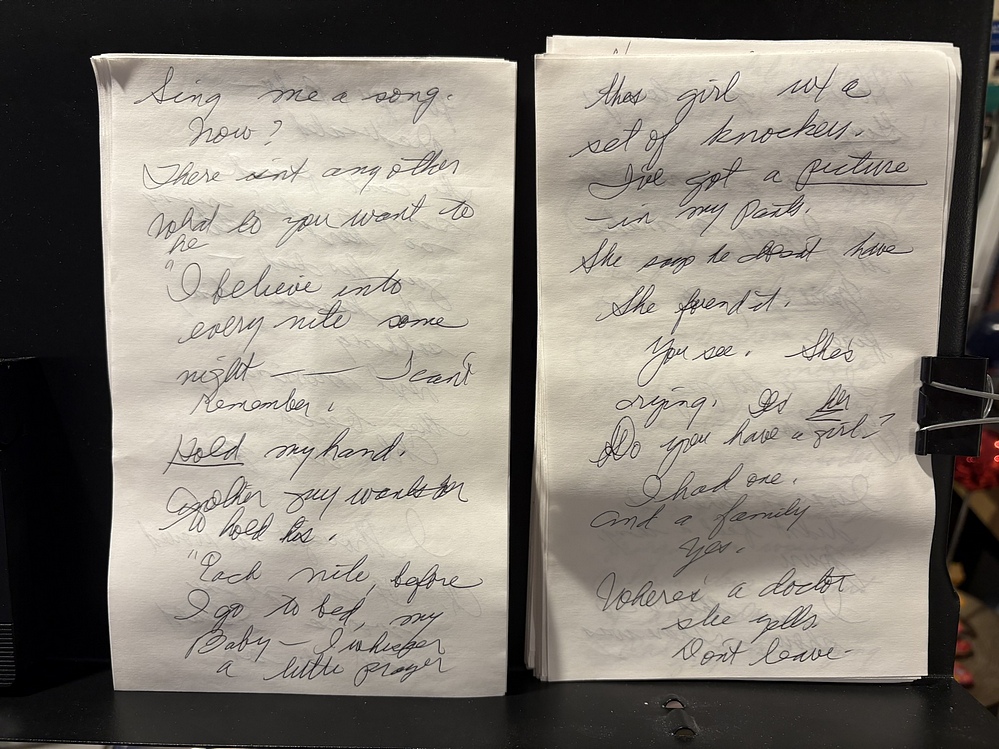 Sing me a song.
Now?
There aint any other
What do you want to
he
"I believe into
every nite some
night — — I can't
Remember.
Hold my hand.
Another guy wants her
to hold his.
"Each nite, before
I go to bed, my
Baby — I whisper
a little prayer
this girl w/ a
set of knockers.
I've got a picture
— in my pants.
She says he doesnt have
She found it.
You see. She's
crying. Its her
Do you have a girl?
I had one.
and a family
yes.
Where's a doctor
she yells
Don't leave-